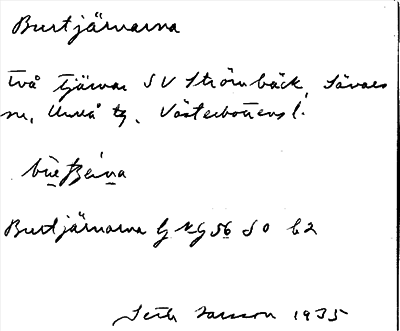 Burtjärnarna
Två tjärnar SV Strömbäck, Sävars
sn, Umeå tg, Västerbottens l.
Burtjärnarna G kg 56 SO b2
Seth Larsson 1935